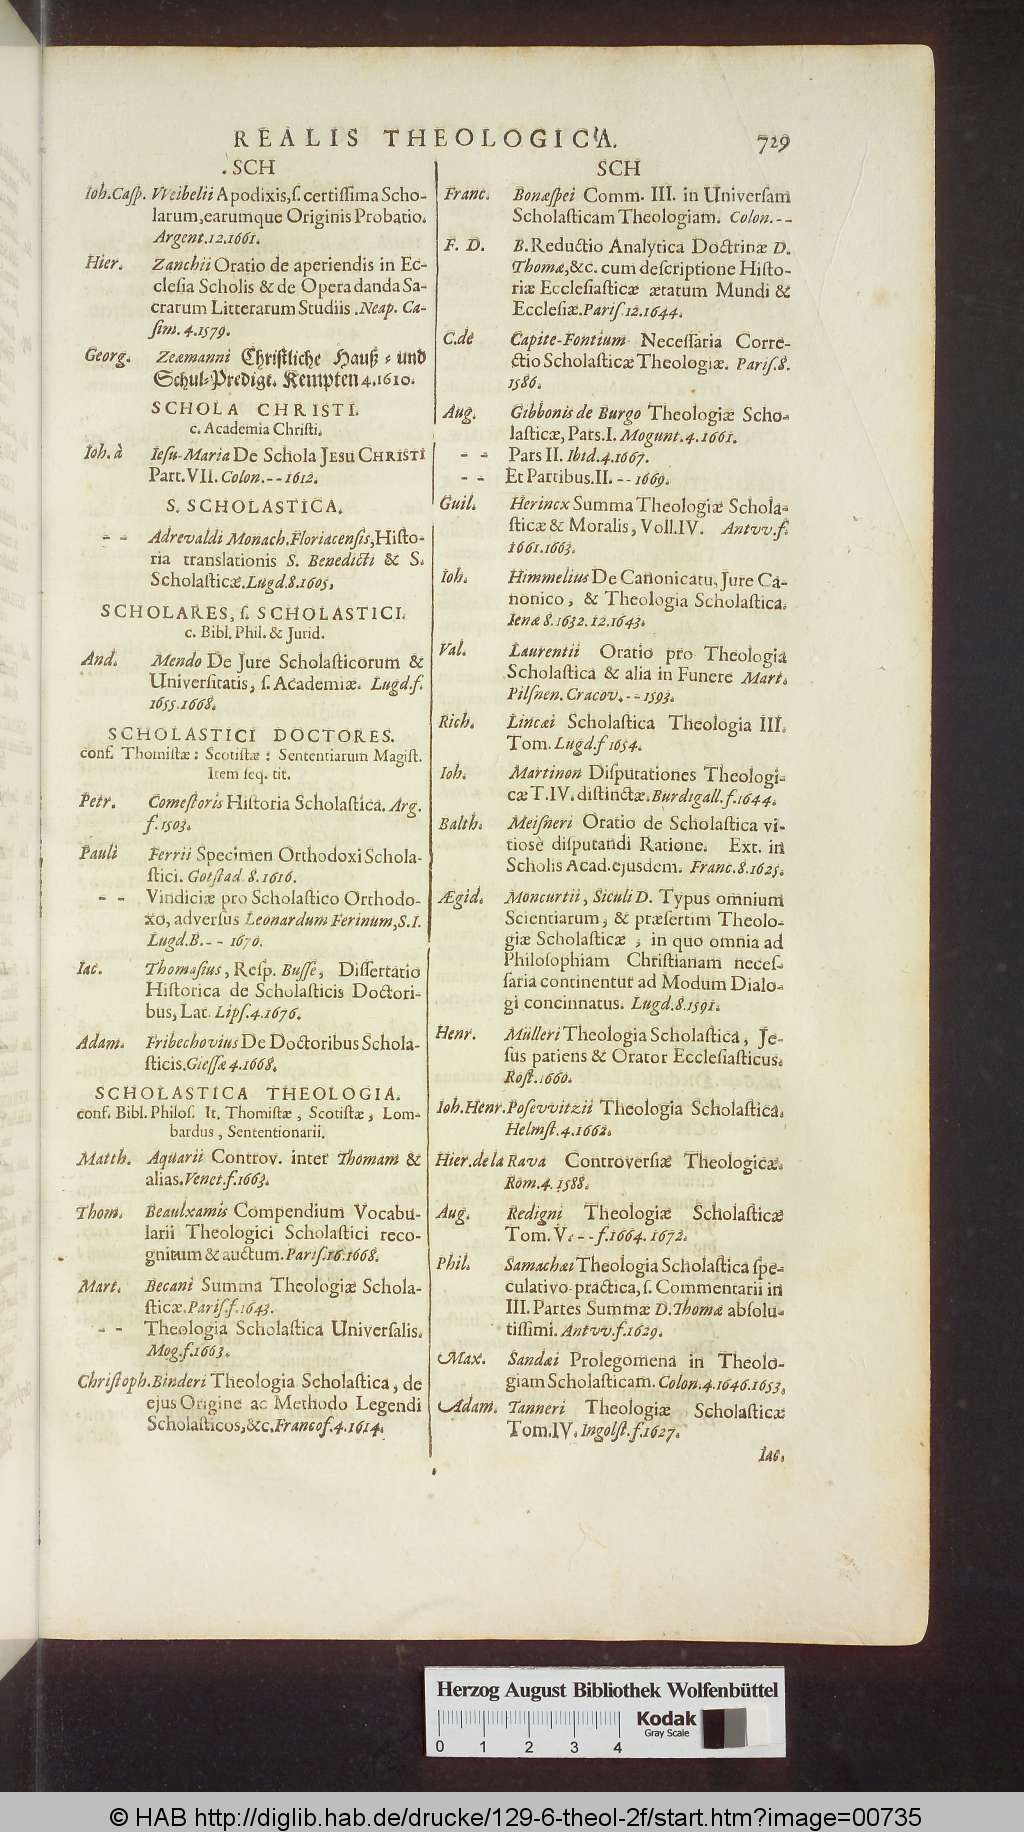 REALIS THEOLOGICA.
729
SCH
Ioh. Casp. VVeibelii Apodixis, ſ. certiſſima Scho-
larum, earumque Originis Probatio.
Argent. 12. 1661.
Hier. Zanchii Oratio de aperiendis in Ec-
cleſia Scholis & de Opera danda Sa-
crarum Litterarum Studiis. Neap. Ca-
ſim. 4. 1579.
Georg. Zeæmanni Chriſtliche Hauß - und
Schul-Predigt. Kempten 4. 1610.
SCHOLA CHRISTI.
c. Academia Chriſti.
Ioh. à Ieſu-Maria De Schola JESU CHRISTI
Part. VII. Colon. - - 1612.
S. SCHOLASTICA.
- - Adrevaldi Monach. Floriacenſis, Hiſto-
ria translationis S. Benedicti & S.
Scholaſticæ. Lugd. 8. 1605.
SCHOLARES, ſ. SCHOLASTICI.
c. Bibl. Phil. & Jurid.
And. Mendo De Jure Scholaſticorum &
Univerſitatis, ſ. Academiæ. Lugd. f.
1655. 1668.
SCHOLASTICI DOCTORES.
conf. Thomiſtæ: Scotiſtæ: Sententiarum Magiſt.
Item ſeq. tit.
Petr. Comeſtoris Hiſtoria Scholaſtica. Arg.
f. 1503.
Pauli Ferrii Specimen Orthodoxi Schola-
ſtici. Gotſtad. 8. 1616.
- - Vindiciæ pro Scholaſtico Orthodo-
xo, adverſus Leonardum Ferinum, S. I.
Lugd. B. - - 1670.
Iac. Thomaſius, Reſp. Buſſe, Diſſertatio
Hiſtorica de Scholaſticis Doctori-
bus, Lat. Lipſ. 4. 1676.
Adam. Fribechovius De Doctoribus Schola-
ſticis. Gieſſæ 4. 1668.
SCHOLASTICA THEOLOGIA.
conf. Bibl. Philoſ. It. Thomiſtæ, Scotiſtæ, Lom-
bardus, Sententionarii.
Matth. Aquarii Controv. inter Thomam &
alias. Venet. f. 1663.
Thom. Beaulxamis Compendium Vocabu-
larii Theologici Scholaſtici reco-
gnitum & auctum. Pariſ. 16. 1668.
Mart. Becani Summa Theologiæ Schola-
ſticæ. Pariſ. f. 1643.
- - Theologia Scholaſtica Univerſalis.
Mog. f. 1663.
Chriſtoph. Binderi Theologia Scholaſtica, de
ejus Origine ac Methodo Legendi
Scholaſticos, &c. Francof. 4. 1614.
SCH
Franc. Bonæſpei Comm. III. in Univerſam
Scholaſticam Theologiam. Colon. - -
F. D. B. Reductio Analytica Doctrinæ D.
Thomæ, &c. cum deſcriptione Hiſto-
riæ Eccleſiaſticæ ætatum Mundi &
Eccleſiæ. Pariſ 12. 1644.
C. de Capite-Fontium Neceſſaria Corre-
ctio Scholaſticæ Theologiæ. Pariſ. 8.
1586.
Aug. Gibbonis de Burgo Theologiæ Scho-
laſticæ, Pars I. Mogunt. 4. 1661.
- - Pars II. Ibid. 4. 1667.
- - Et Partibus. II. - - 1669.
Guil. Herincx Summa Theologiæ Schola-
ſticæ & Moralis, Voll. IV. Antvv. f.
1661. 1663.
Ioh. Himmelius De Canonicatu, Jure Ca-
nonico, & Theologia Scholaſtica.
Ienæ 8. 1632. 12. 1643.
Val. Laurentii Oratio pro Theologia
Scholaſtica & alia in Funere Mart.
Pilſnen. Cracov. - - 1593.
Rich. Lincæi Scholaſtica Theologia III.
Tom. Lugd. f 1654.
Ioh. Martinon Diſputationes Theologi-
cæ T. IV. diſtinctæ. Burdigall. f. 1644.
Balth. Meiſneri Oratio de Scholaſtica vi-
tioſe diſputandi Ratione. Ext. in
Scholis Acad. ejusdem. Franc. 8. 1625.
Ægid. Moncurtii, Siculi D. Typus omnium
Scientiarum, & præſertim Theolo-
giæ Scholaſticæ, in quo omnia ad
Philoſophiam Chriſtianam neceſ-
ſaria continentur ad Modum Dialo-
gi concinnatus. Lugd. 8. 1591.
Henr. Mülleri Theologia Scholaſtica, Je-
ſus patiens & Orator Eccleſiaſticus.
Roſt. 1660.
Ioh. Henr. Poſevvitzii Theologia Scholaſtica.
Helmſt. 4. 1662.
Hier. de la Rava Controverſiæ Theologicæ.
Rom. 4. 1588.
Aug. Redigni Theologiæ Scholaſticæ
Tom. V. - - f. 1664. 1672.
Phil. Samachai Theologia Scholaſtica ſpe-
culativo-practica, ſ. Commentarii in
III. Partes Summæ D. Thomæ abſolu-
tiſſimi. Antvv. f. 1629.
Max. Sandæi Prolegomena in Theolo-
giam Scholaſticam. Colon. 4. 1646. 1653.
Adam. Tanneri Theologiæ Scholaſticæ
Tom. IV. Ingolſt. f. 1627.
Iac.
Herzog August Bibliothek Wolfenbüttel
0 1 2 3 4
Kodak
Gray Scale
© HAB http://diglib.hab.de/drucke/129-6-theol-2f/start.htm?image=00735